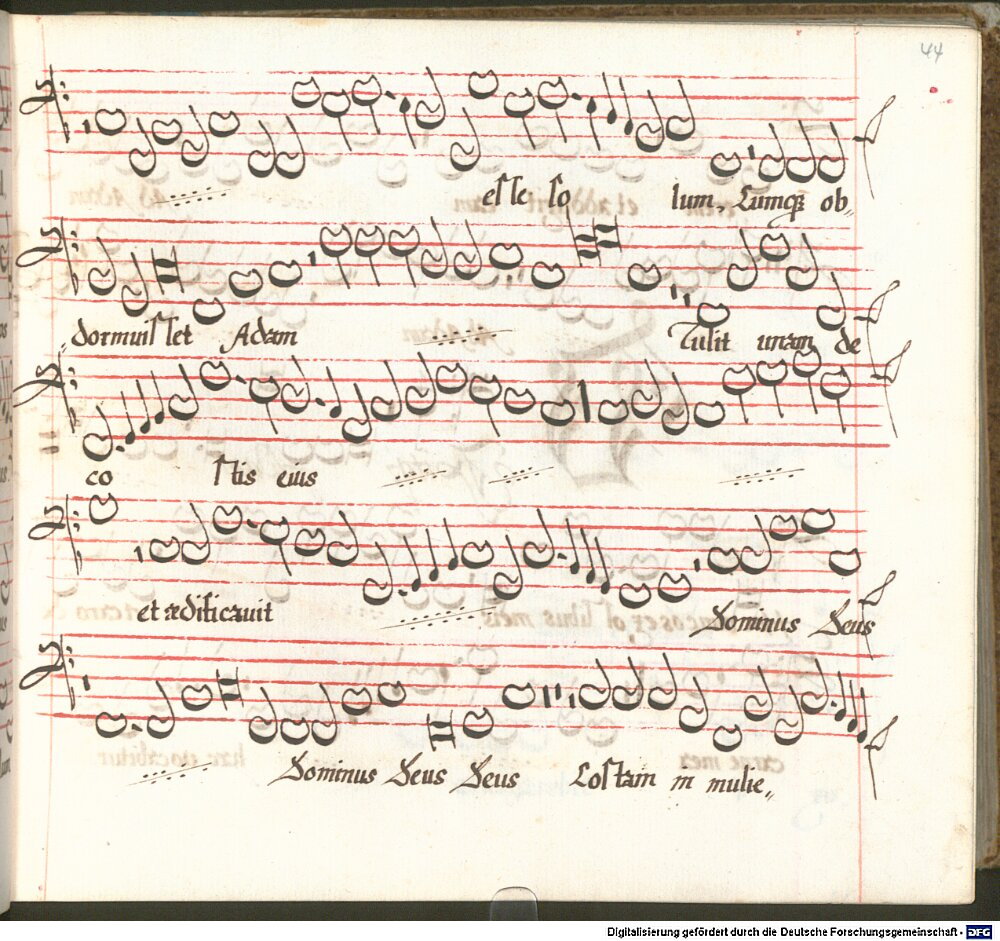 44
esse so lum, Cumq; ob„
dormuisset Adam Tulit unam de
co stis eius
et ædificavit Dominus Deus
Dominus Deus Deus Costam in mulie„
Digitalisierung gefördert durch die Deutsche Forschungsgemeinschaft - DFG